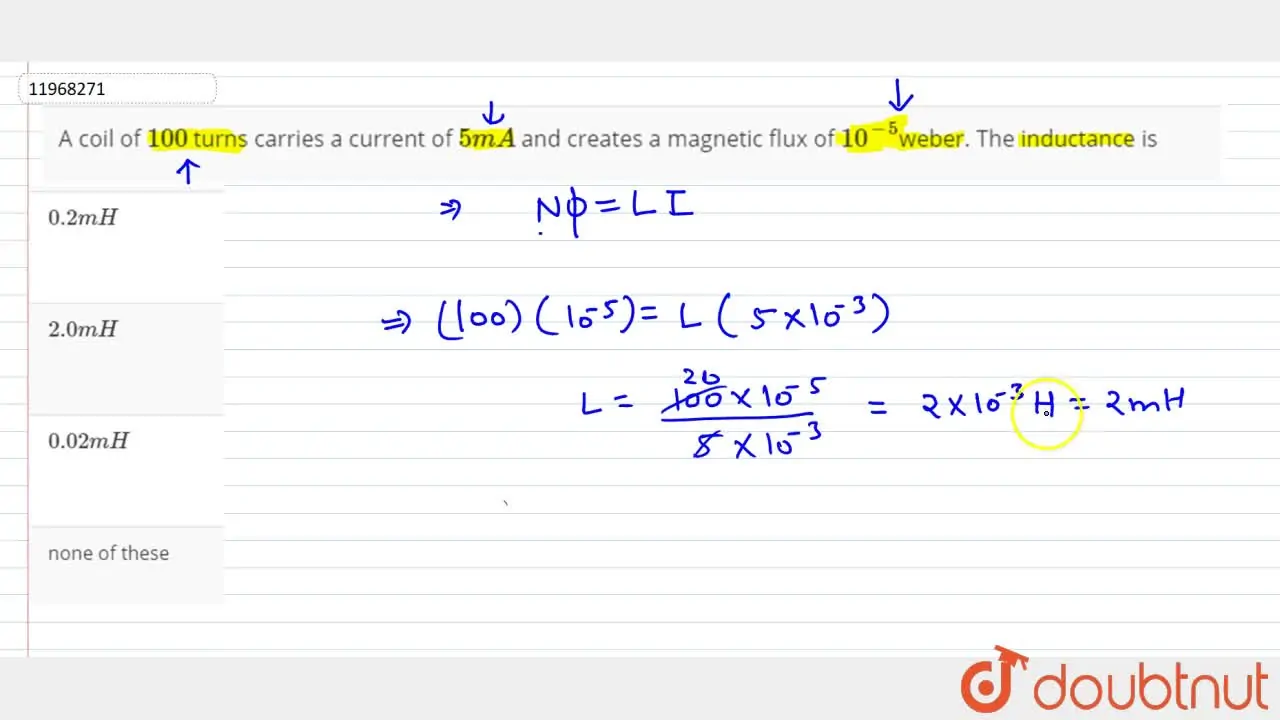 11968271
A coil of 100 turns carries a current of 5mA and creates a magnetic flux of 10⁻⁵ weber. The inductance is
0.2mH
2.0mH
0.02mH
none of these
⇒ Nϕ = L I
⇒ (100) (10⁻⁵) = L (5×10⁻³)
L = 20 100 × 10⁻⁵ / 5 × 10⁻³ = 2 × 10⁻³ H = 2mH
doubtnut